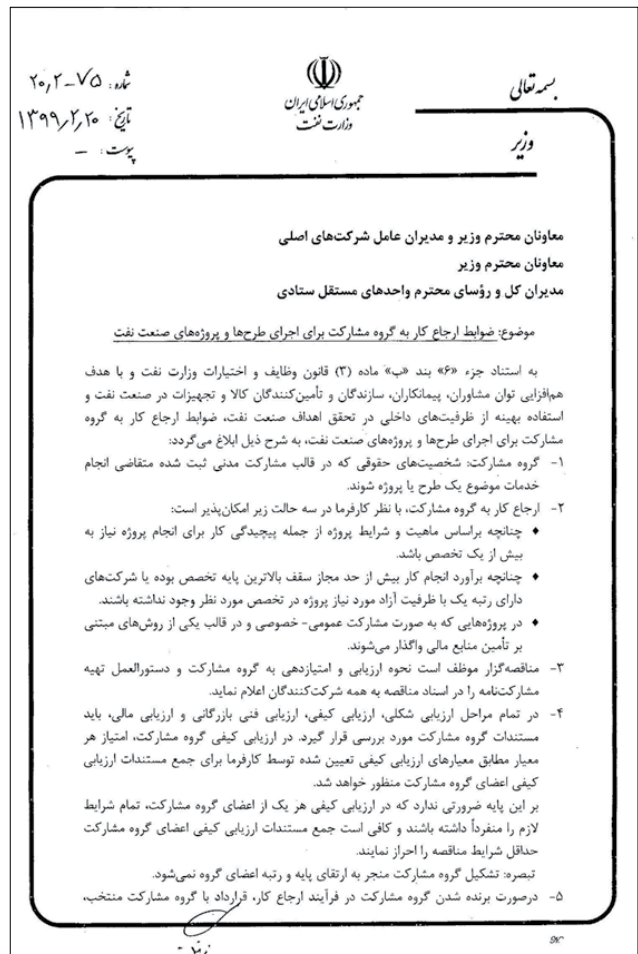 بسمه تعالی
جمهوری اسلامی ایران
وزارت نفت
وزیر
شماره: ۷۵-۲۰٫۲
تاریخ: ۱۳۹۹٫۲٫۲۰
پیوست: -
معاونان محترم وزیر و مدیران عامل شرکت‌های اصلی
معاونان محترم وزیر
مدیران کل و رؤسای محترم واحدهای مستقل ستادی
موضوع: ضوابط ارجاع کار به گروه مشارکت برای اجرای طرح‌ها و پروژه‌های صنعت نفت
به استناد جزء «۶» بند «ب» ماده (۳) قانون وظایف و اختیارات وزارت نفت و با هدف
هم‌افزایی توان مشاوران، پیمانکاران، سازندگان و تأمین‌کنندگان کالا و تجهیزات در صنعت نفت و
استفاده بهینه از ظرفیت‌های داخلی در تحقق اهداف صنعت نفت، ضوابط ارجاع کار به گروه
مشارکت برای اجرای طرح‌ها و پروژه‌های صنعت نفت، به شرح ذیل ابلاغ می‌گردد:
۱- گروه مشارکت: شخصیت‌های حقوقی که در قالب مشارکت مدنی ثبت شده متقاضی انجام
خدمات موضوع یک طرح یا پروژه شوند.
۲- ارجاع کار به گروه مشارکت، با نظر کارفرما در سه حالت زیر امکان‌پذیر است:
♦ چنانچه براساس ماهیت و شرایط پروژه از جمله پیچیدگی کار برای انجام پروژه نیاز به
بیش از یک تخصص باشد.
♦ چنانچه برآورد انجام کار بیش از حد مجاز سقف بالاترین پایه تخصص بوده یا شرکت‌های
دارای رتبه یک با ظرفیت آزاد مورد نیاز پروژه در تخصص مورد نظر وجود نداشته باشند.
♦ در پروژه‌هایی که به صورت مشارکت عمومی- خصوصی و در قالب یکی از روش‌های مبتنی
بر تأمین منابع مالی واگذار می‌شوند.
۳- مناقصه‌گزار موظف است نحوه ارزیابی و امتیازدهی به گروه مشارکت و دستورالعمل تهیه
مشارکت‌نامه را در اسناد مناقصه به همه شرکت‌کنندگان اعلام نماید.
۴- در تمام مراحل ارزیابی شکلی، ارزیابی کیفی، ارزیابی فنی بازرگانی و ارزیابی مالی، باید
مستندات گروه مشارکت مورد بررسی قرار گیرد. در ارزیابی کیفی گروه مشارکت، امتیاز هر
معیار مطابق معیارهای ارزیابی کیفی تعیین شده توسط کارفرما برای جمع مستندات ارزیابی
کیفی اعضای گروه مشارکت منظور خواهد شد.
بر این پایه ضرورتی ندارد که در ارزیابی کیفی هر یک از اعضای گروه مشارکت، تمام شرایط
لازم را منفرداً داشته باشند و کافی است جمع مستندات ارزیابی کیفی اعضای گروه مشارکت
حداقل شرایط مناقصه را احراز نمایند.
تبصره: تشکیل گروه مشارکت منجر به ارتقای پایه و رتبه اعضای گروه نمی‌شود.
۵- درصورت برنده شدن گروه مشارکت در فرآیند ارجاع کار، قرارداد با گروه مشارکت منتخب،